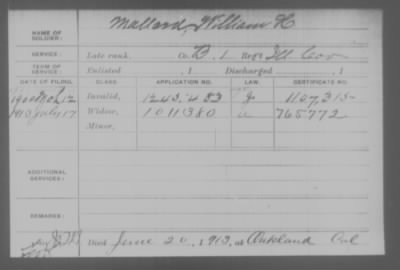 NAME OF SOLDIER: Mallard, William H
SERVICE: Late rank, Co. B, 1 Reg't Ill. Cav
TERM OF SERVICE: Enlisted , 1 Discharged , 1
DATE OF FILING. CLASS. APPLICATION NO. LAW. CERTIFICATE NO.
1900 Mch 12 Invalid, 1243.483 1107,315
1913 July 17 Widow, 1011380 765772
Minor,
ADDITIONAL SERVICES:
REMARKS:
Died June 20, 1913, at Oakland Cal